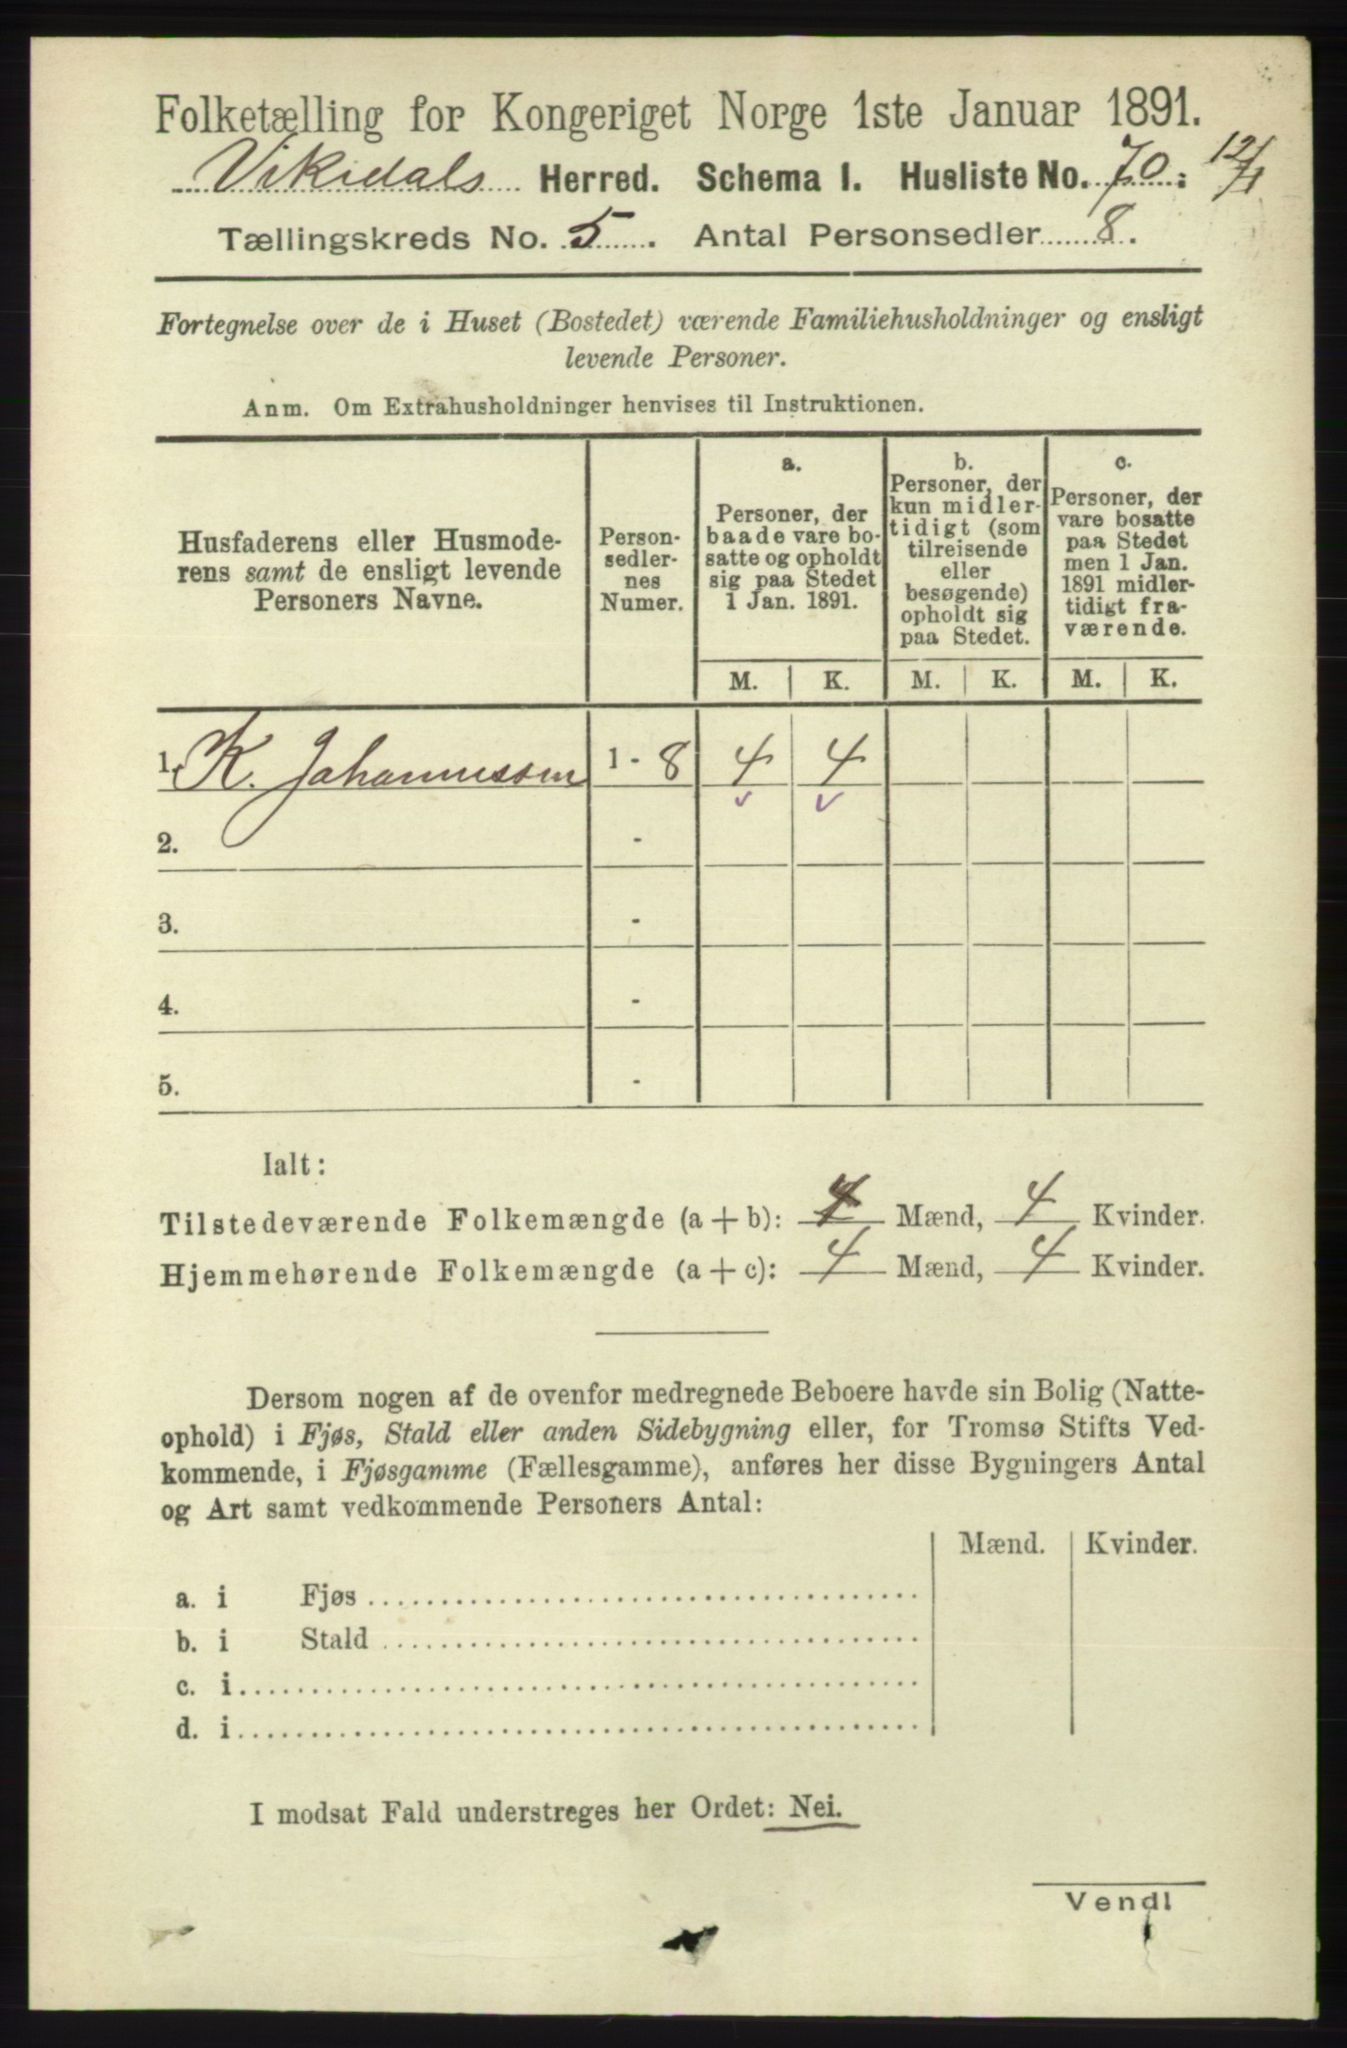 Folketælling for Kongeriget Norge 1ste Januar 1891.
Vikedals Herred. Schema 1. Husliste No. 70. 12/1
Tællingskreds No. 5. Antal Personsedler 8.
Fortegnelse over de i Huset (Bostedet) værende Familiehusholdninger og ensligt
levende Personer.
Anm. Om Extrahusholdninger henvises til Instruktionen.
Husfaderens eller Husmode-
rens samt de ensligt levende
Personers Navne.
Person-
sedler-
nes
Numer.
a.
Personer, der
baade vare bo-
satte og opholdt
sig paa Stedet
1 Jan. 1891.
b.
Personer, der
kun midler-
tidigt (som
tilreisende
eller
besøgende)
opholdt sig
paa Stedet.
c.
Personer, der
vare bosatte
paa Stedet
men 1 Jan.
1891 midler-
tidigt fra-
værende.
M. K. M. K. M. K.
1. K. Johannessen 1 - 8 4 4
2. -
3. -
4. -
5. -
Ialt:
Tilstedeværende Folkemængde (a + b): 4 Mænd, 4 Kvinder.
Hjemmehørende Folkemængde (a + c): 4 Mænd, 4 Kvinder.
Dersom nogen af de ovenfor medregnede Beboere havde sin Bolig (Natte-
ophold) i Fjøs, Stald eller anden Sidebygning eller, for Tromsø Stifts Ved-
kommende, i Fjøsgamme (Fællesgamme), anføres her disse Bygningers Antal
og Art samt vedkommende Personers Antal:
Mænd. Kvinder.
a. i Fjøs
b. i Stald
c. i
d. i
I modsat Fald understreges her Ordet: Nei.
Vend!